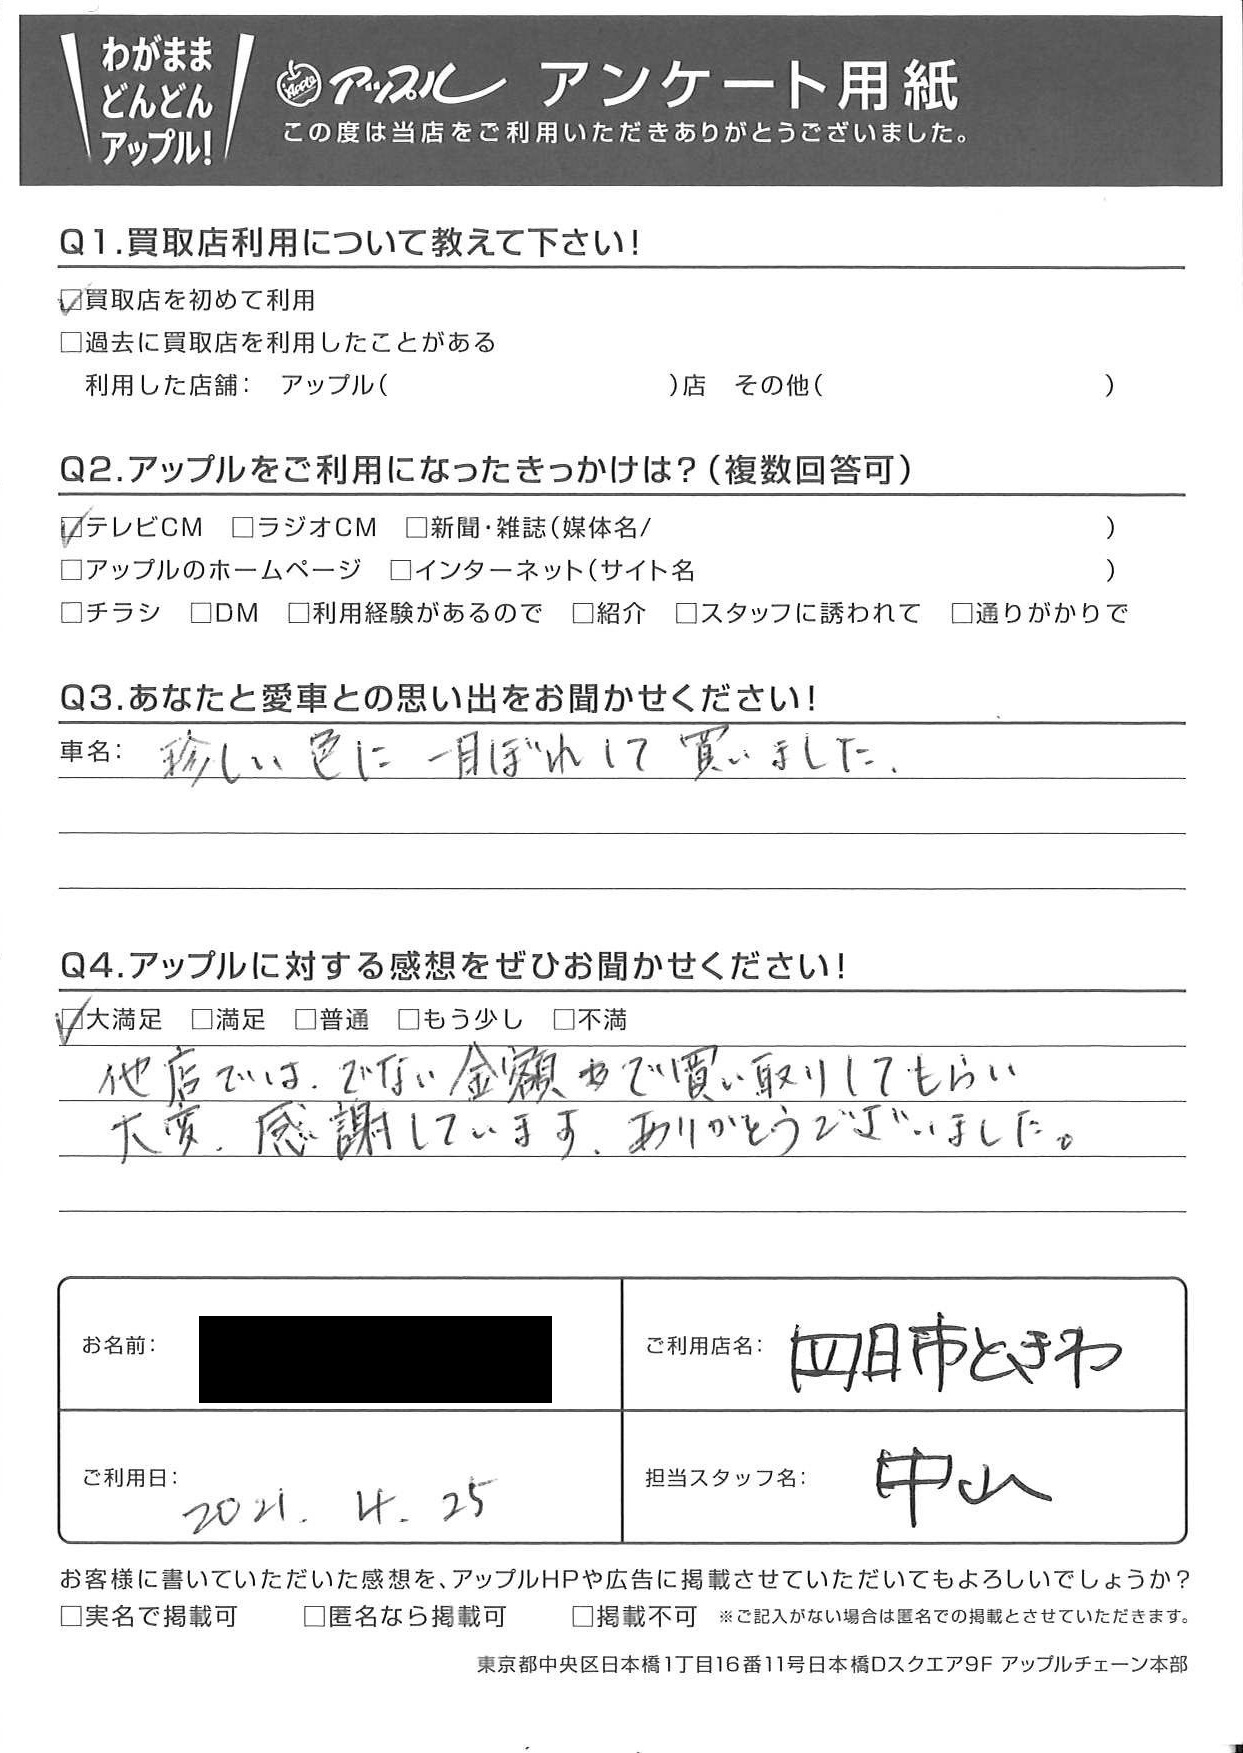 わがまま
どんどん
アップル!
Apple アップル アンケート用紙
この度は当店をご利用いただきありがとうございました。
Q1.買取店利用について教えて下さい!
☑買取店を初めて利用
□過去に買取店を利用したことがある
利用した店舗: アップル( )店 その他( )
Q2.アップルをご利用になったきっかけは?(複数回答可)
☑テレビCM □ラジオCM □新聞・雑誌(媒体名/ )
□アップルのホームページ □インターネット(サイト名 )
□チラシ □DM □利用経験があるので □紹介 □スタッフに誘われて □通りがかりで
Q3.あなたと愛車との思い出をお聞かせください!
車名: 珍しい色に一目ぼれして買いました.
Q4.アップルに対する感想をぜひお聞かせください!
☑大満足 □満足 □普通 □もう少し □不満
他店では、でない金額まで買い取りしてもらい
大変、感謝しています、ありがとうございました。
お名前:
ご利用店名: 四日市ときわ
ご利用日: 2021. 4. 25
担当スタッフ名: 中山
お客様に書いていただいた感想を、アップルHPや広告に掲載させていただいてもよろしいでしょうか?
□実名で掲載可 □匿名なら掲載可 □掲載不可 ※ご記入がない場合は匿名での掲載とさせていただきます。
東京都中央区日本橋1丁目16番11号日本橋Dスクエア9F アップルチェーン本部